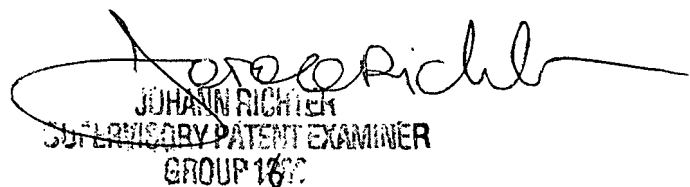 JOHANN RICHTER
SUPERVISORY PATENT EXAMINER
GROUP